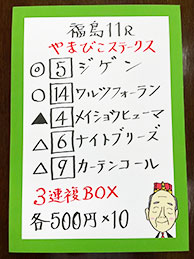 福島11R
やまびこステークス
◎5 ジゲン
○14 ワルツフォーラン
▲4 メイショウヒューマ
△6 ナイトブリーズ
△9 カーテンコール
3連複BOX
各500円×10